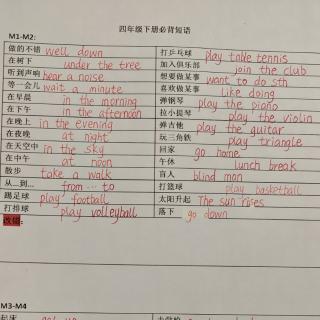 四年级下册必背短语
M1-M2:
做的不错 well down 打乒乓球 play table tennis
在树下 under the tree 加入俱乐部 join the club
听到声响 hear a noise 想要做某事 want to do sth
等一会儿 wait a minute 喜欢做某事 like doing
在早晨 in the morning 弹钢琴 play the piano
在下午 in the afternoon 拉小提琴 play the violin
在晚上 in the evening 弹吉他 play the guitar
在夜晚 at night 玩三角铁 play triangle
在天空中 in the sky 回家 go home
在中午 at noon 午休 lunch break
散步 take a walk 盲人 blind man
从...到... from ... to 打篮球 play basketball
踢足球 play football 太阳升起 The sun rises
打排球 play volleyball 落下 go down
改错:
M3-M4
起床 get up